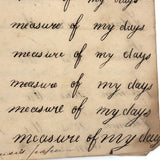 measure of my days
measure of my days
measure of my days
measure of my days
measure of my days
measure of my days